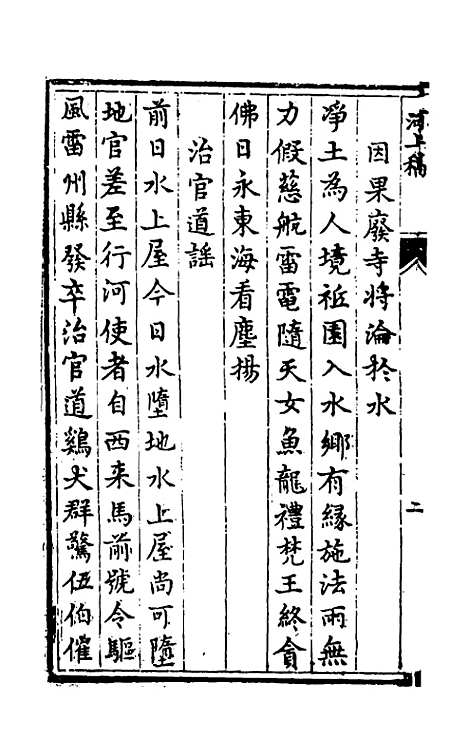 河上稿
二
因果廢寺將淪於水
淨土為人境祇園入水鄉有緣施法雨無
力假慈航雷電隨天女魚龍禮梵王終會
佛日永東海看塵揚
治官道謠
前日水上屋今日水墮地水上屋尚可墮
地官差至行河使者自西来馬前號令驅
風雷州縣發卒治官道鷄犬群驚伍伯催